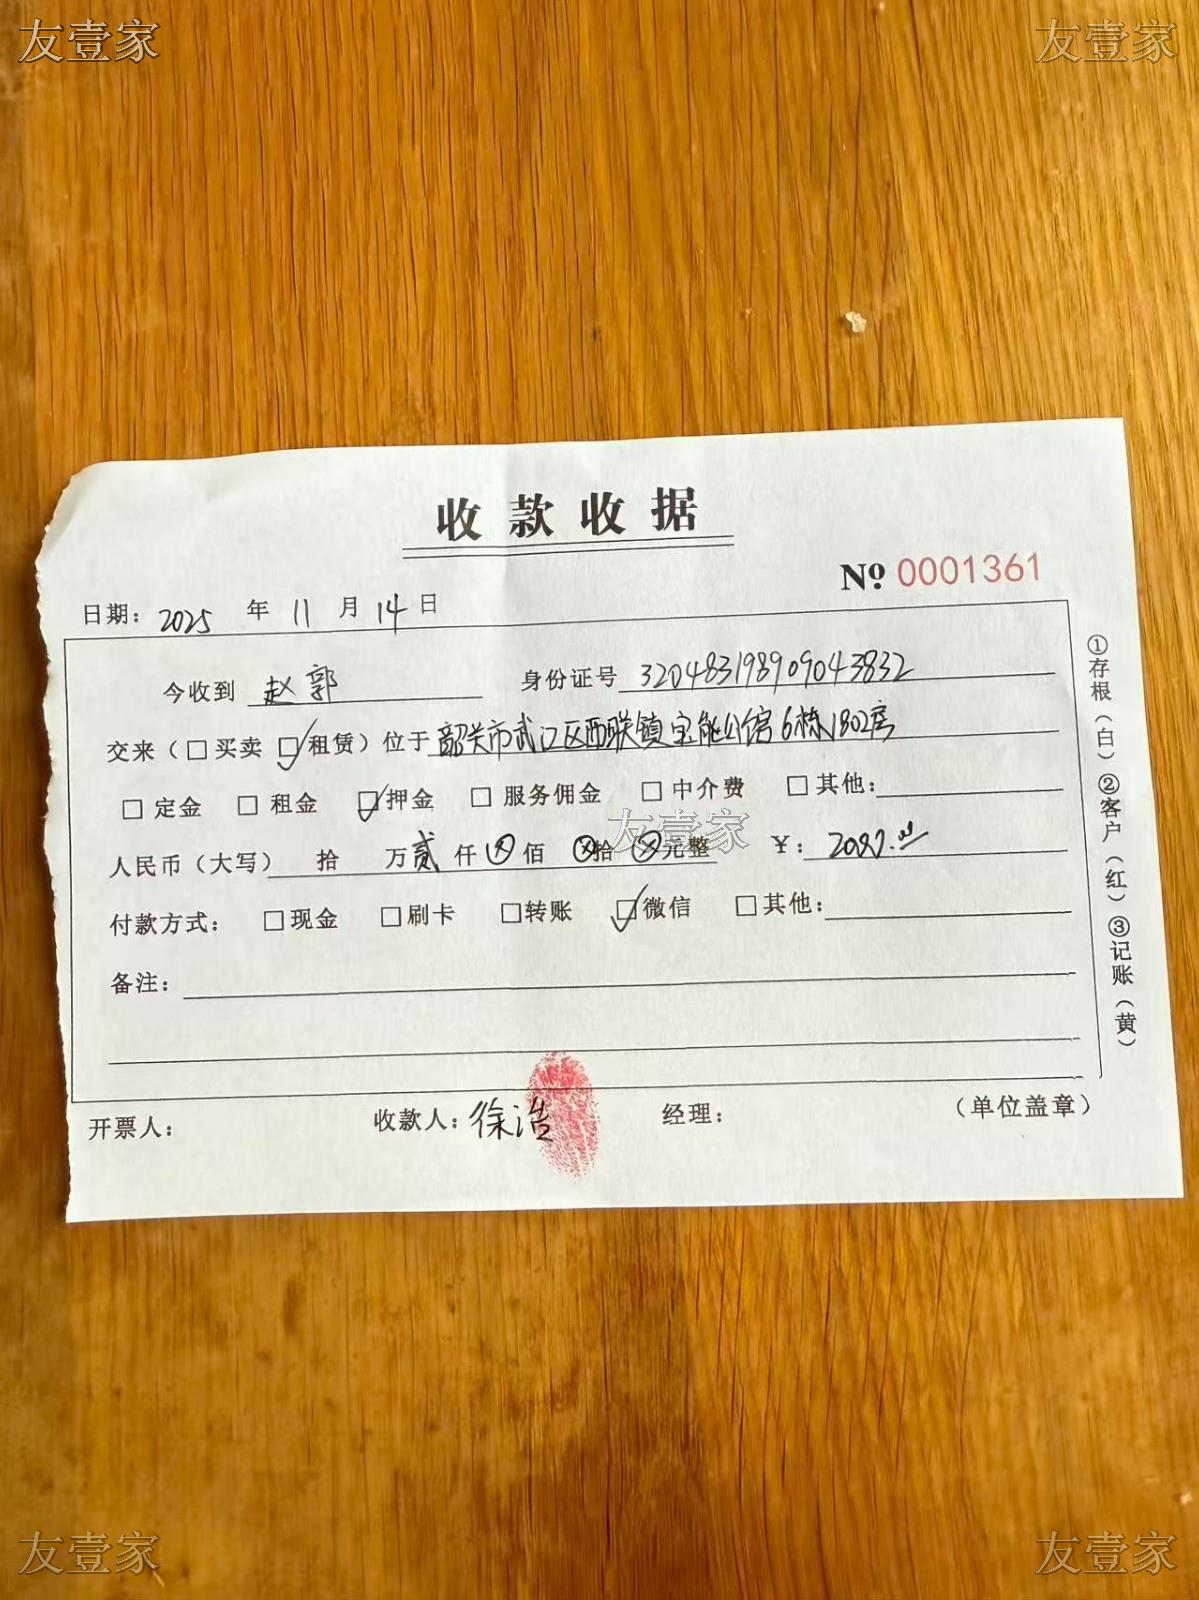 友壹家 友壹家
收款收据
Nº 0001361
日期: 2025 年 11 月 14 日
今收到 赵郭 身份证号 320483198909043832
交来（□买卖 ☑租赁）位于 韶关市武江区西联镇宝能公馆6栋1802房
□ 定金 □ 租金 ☑ 押金 □ 服务佣金 □ 中介费 □ 其他:
人民币（大写） 拾 万 贰 仟 ⊗ 佰 ⊗ 拾 ⊗ 元整 ¥:
友壹家
付款方式: □现金 □刷卡 □转账 ☑微信 □其他:
备注:
开票人: 收款人: 徐浩 经理: （单位盖章）
①存根（白）②客户（红）③记账（黄）
友壹家 友壹家